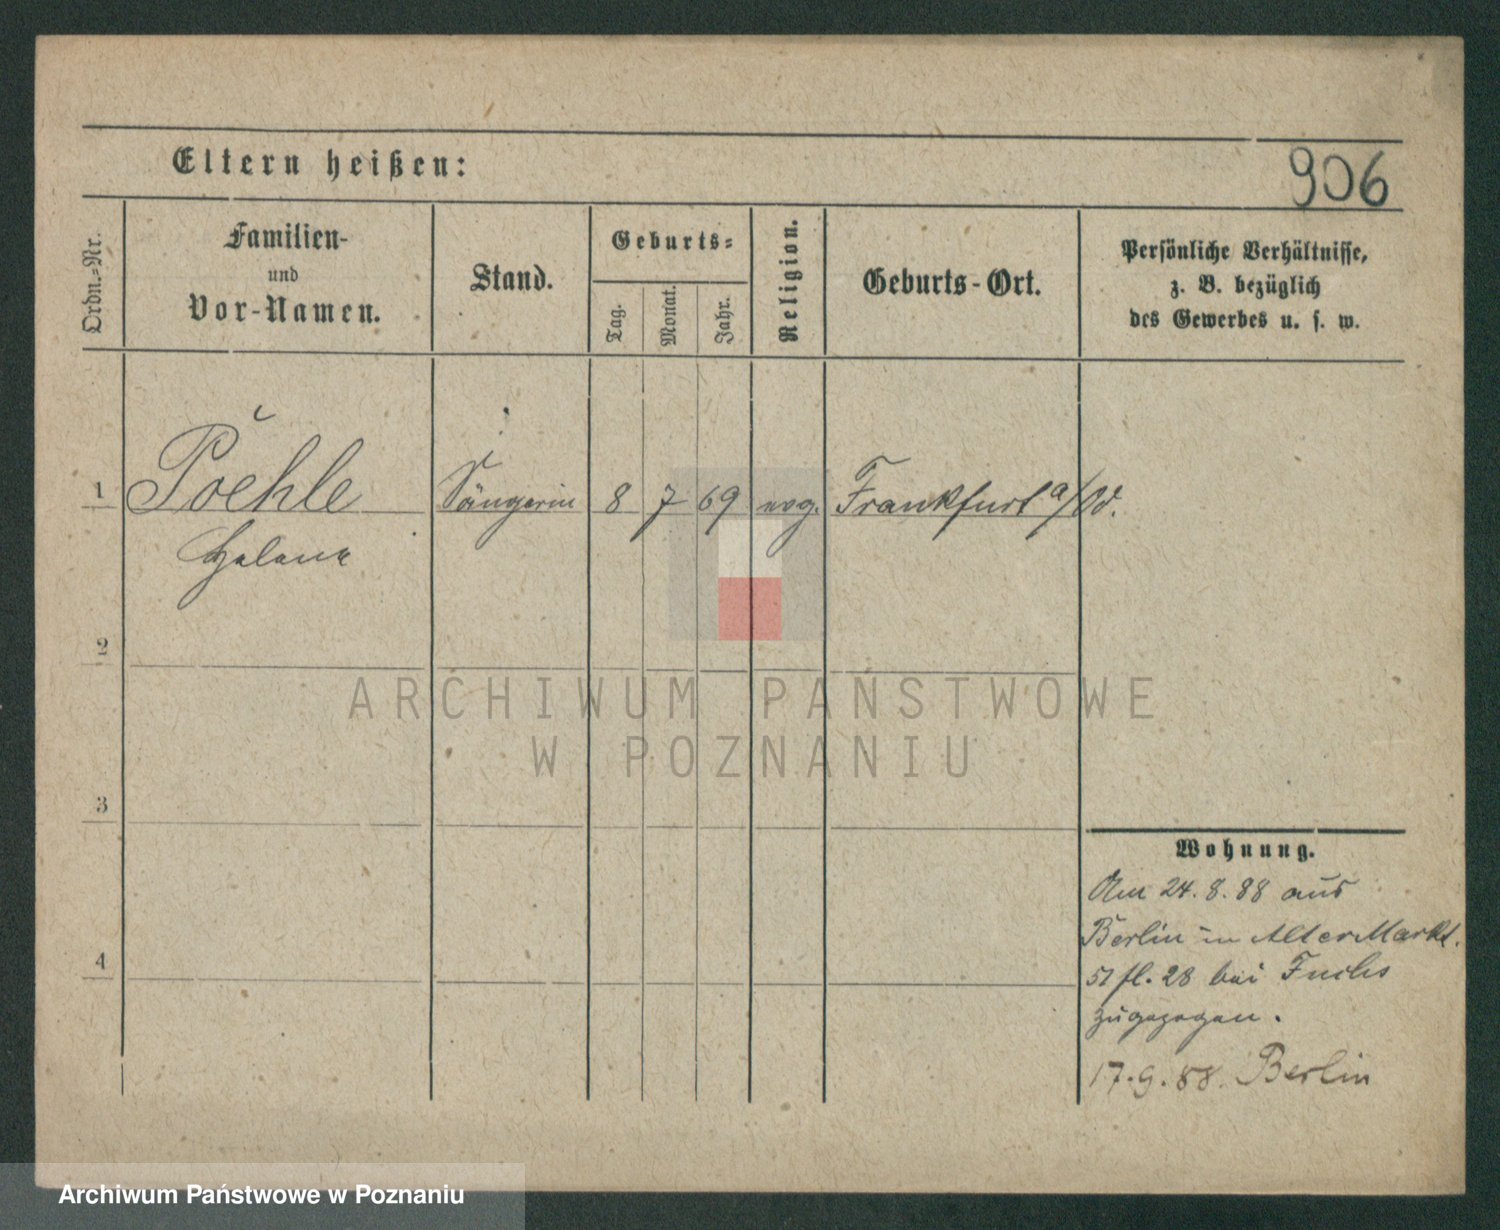 Eltern heißen:
906
Ordn.=Nr.
Familien-
und
Vor-Namen.
Stand.
Geburts=
Tag.
Monat.
Jahr.
Religion.
Geburts-Ort.
Persönliche Verhältnisse,
z. B. bezüglich
des Gewerbes u. s. w.
1 Poehle Sängerin 8 7 69 evg. Frankfurt a/Od.
Helene
2
ARCHIWUM PAŃSTWOWE
W POZNANIU
3
Wohnung.
Am 24. 8. 88 aus
Berlin in Alter Markt.
51 fl. 28 bei Fuchs
4
zugezogen.
17. 9. 88. Berlin
Archiwum Państwowe w Poznaniu